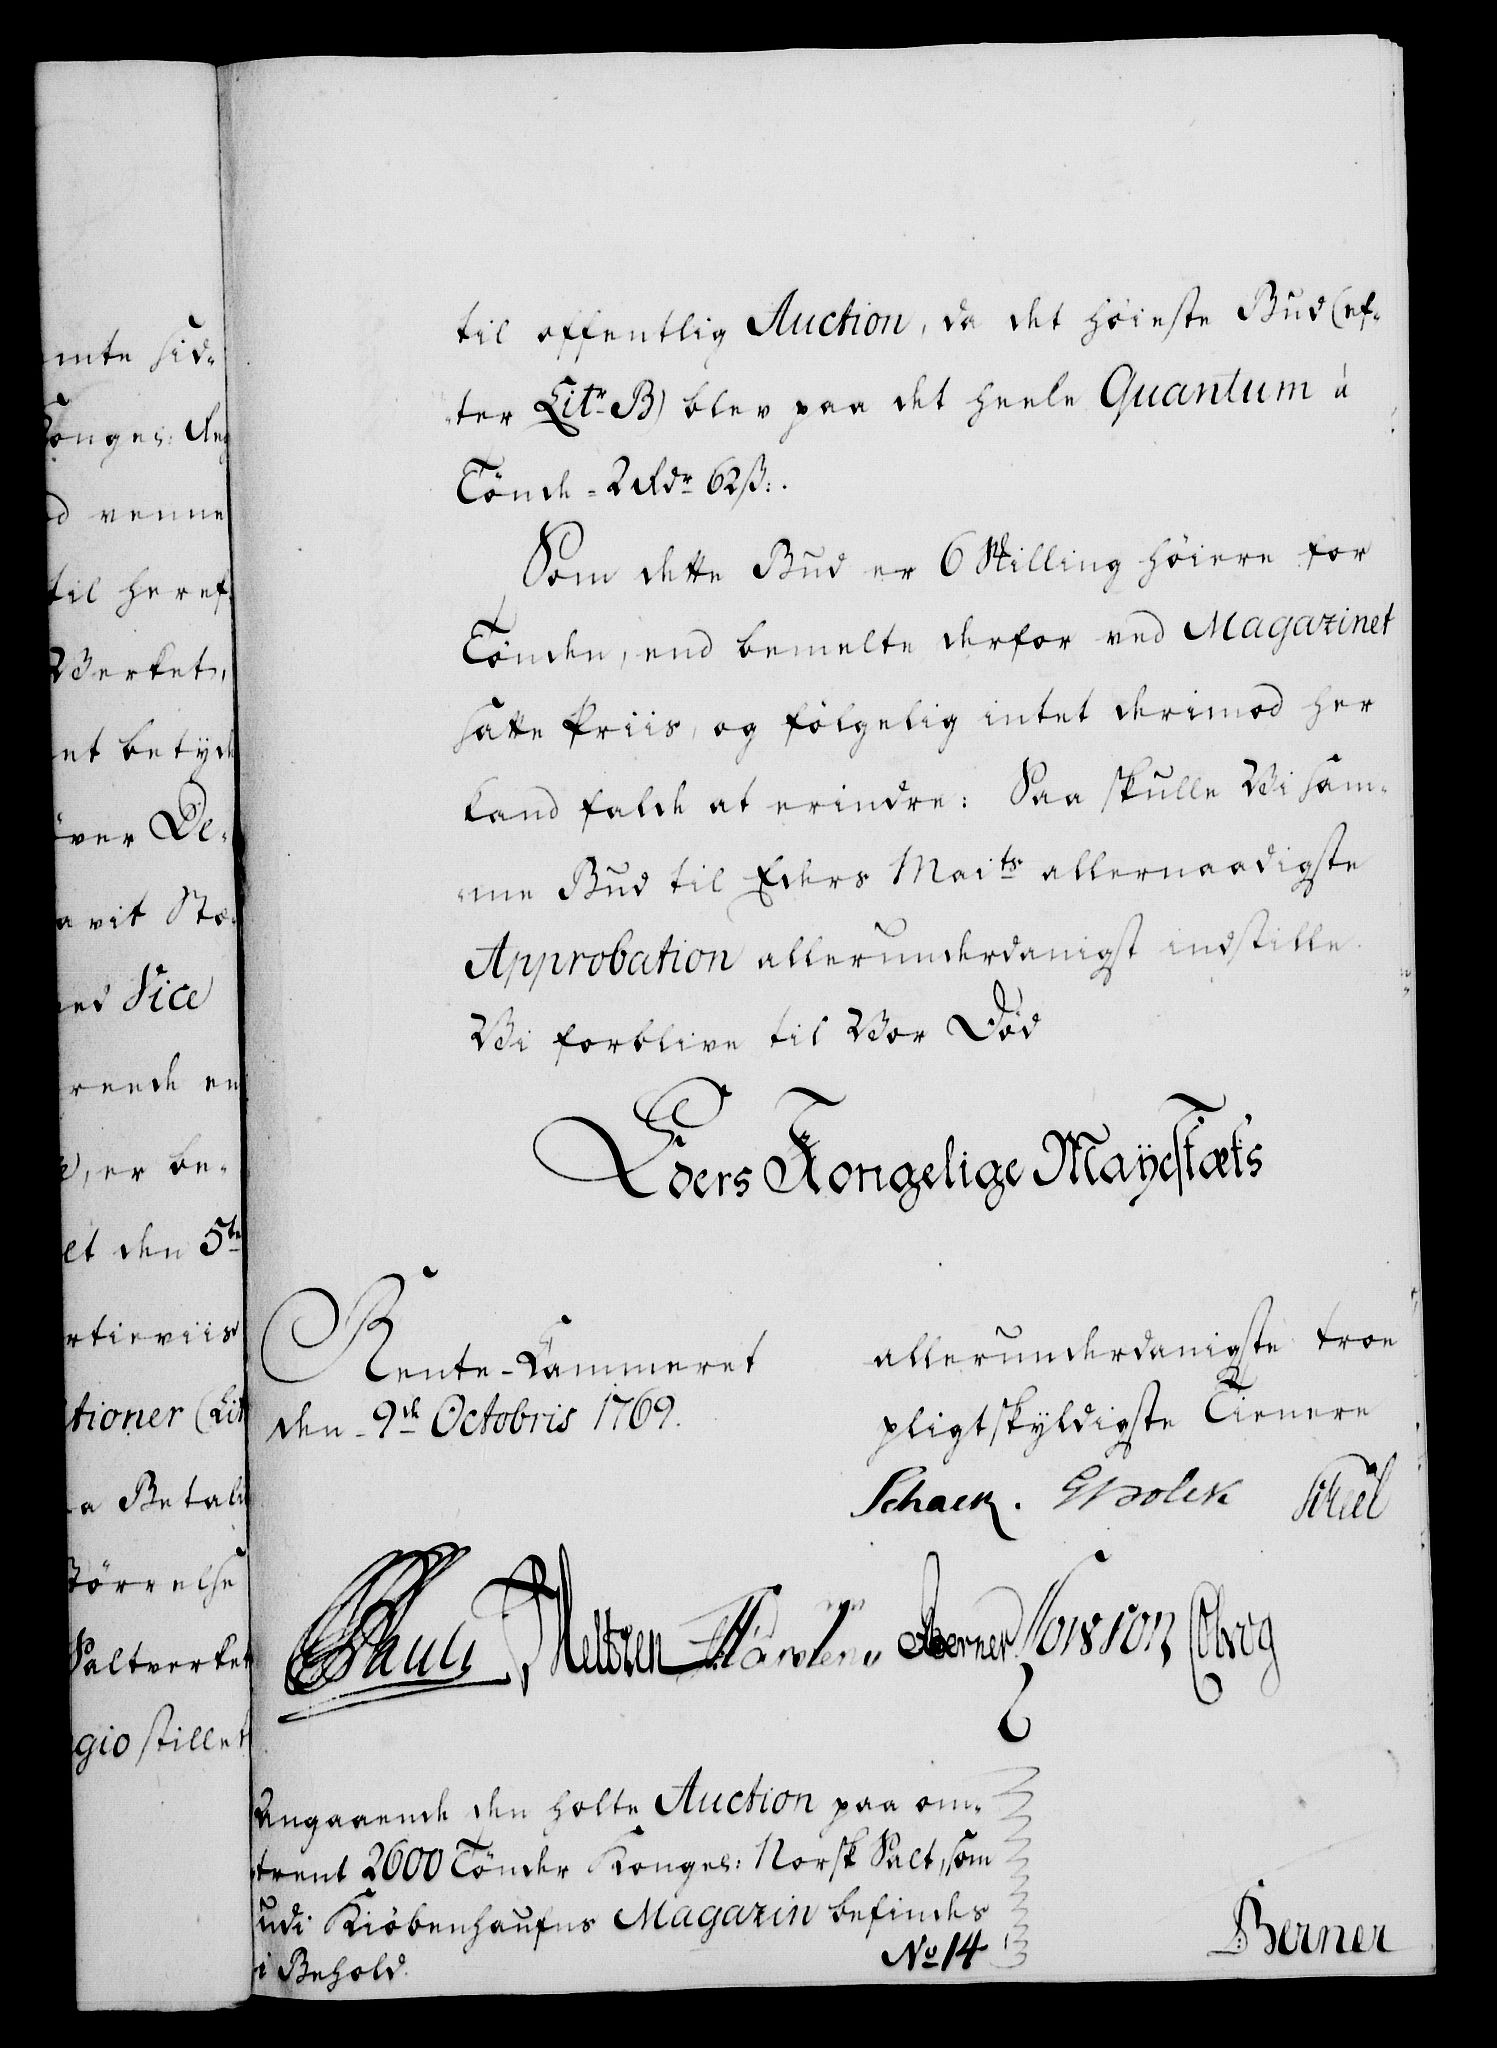 mte sid¬
Konges: Reg
d venne
til heref¬
Werket,
et betyde
över De¬
avit Stæ¬
ed Vice
rende en
, er be¬
et den 5te
rtieviis
tioner (Lit
a Betal
Störrelse
Saltverket
gio stillet
til offentlig Auction, da det höieste Bud (ef¬
ter Litr B) blev paa det heele Quantum à
Tönde - 2 Rdr 62 ß:.
Som dette Bud er 6 Skilling höiere for
Tönden, end bemelte derfor ved Magazinet
satte Priis, og fölgelig intet derimod her
kand falde at erindre: Saa skulle Wi sam¬
me Bud til Eders Maits allernaadigste
Approbation allerunderdanigst indstille.
Wi forblive til Vor Död
Eders Kongelige Mayestæts
Rente-Cammeret
den - 9de Octobris 1769.
allerunderdanigste troe
pligtskÿldigste Tienere
Schack. Skeel
Pauli Berner Cobrog
Angaaende den holte Auction paa om¬
trent 2600 Tönder Konges: Norsk Salt, som
udi Kiöbenhaufns Magazin befindes
i Behold.
No 14
Berner